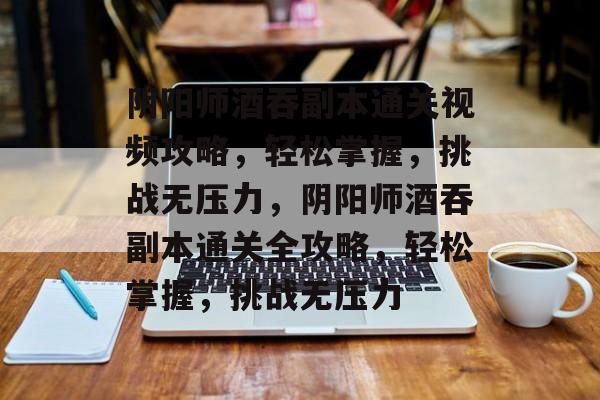 阴阳师酒吞副本通关视
频攻略，轻松掌握，挑
战无压力，阴阳师酒吞
副本通关全攻略，轻松
掌握，挑战无压力